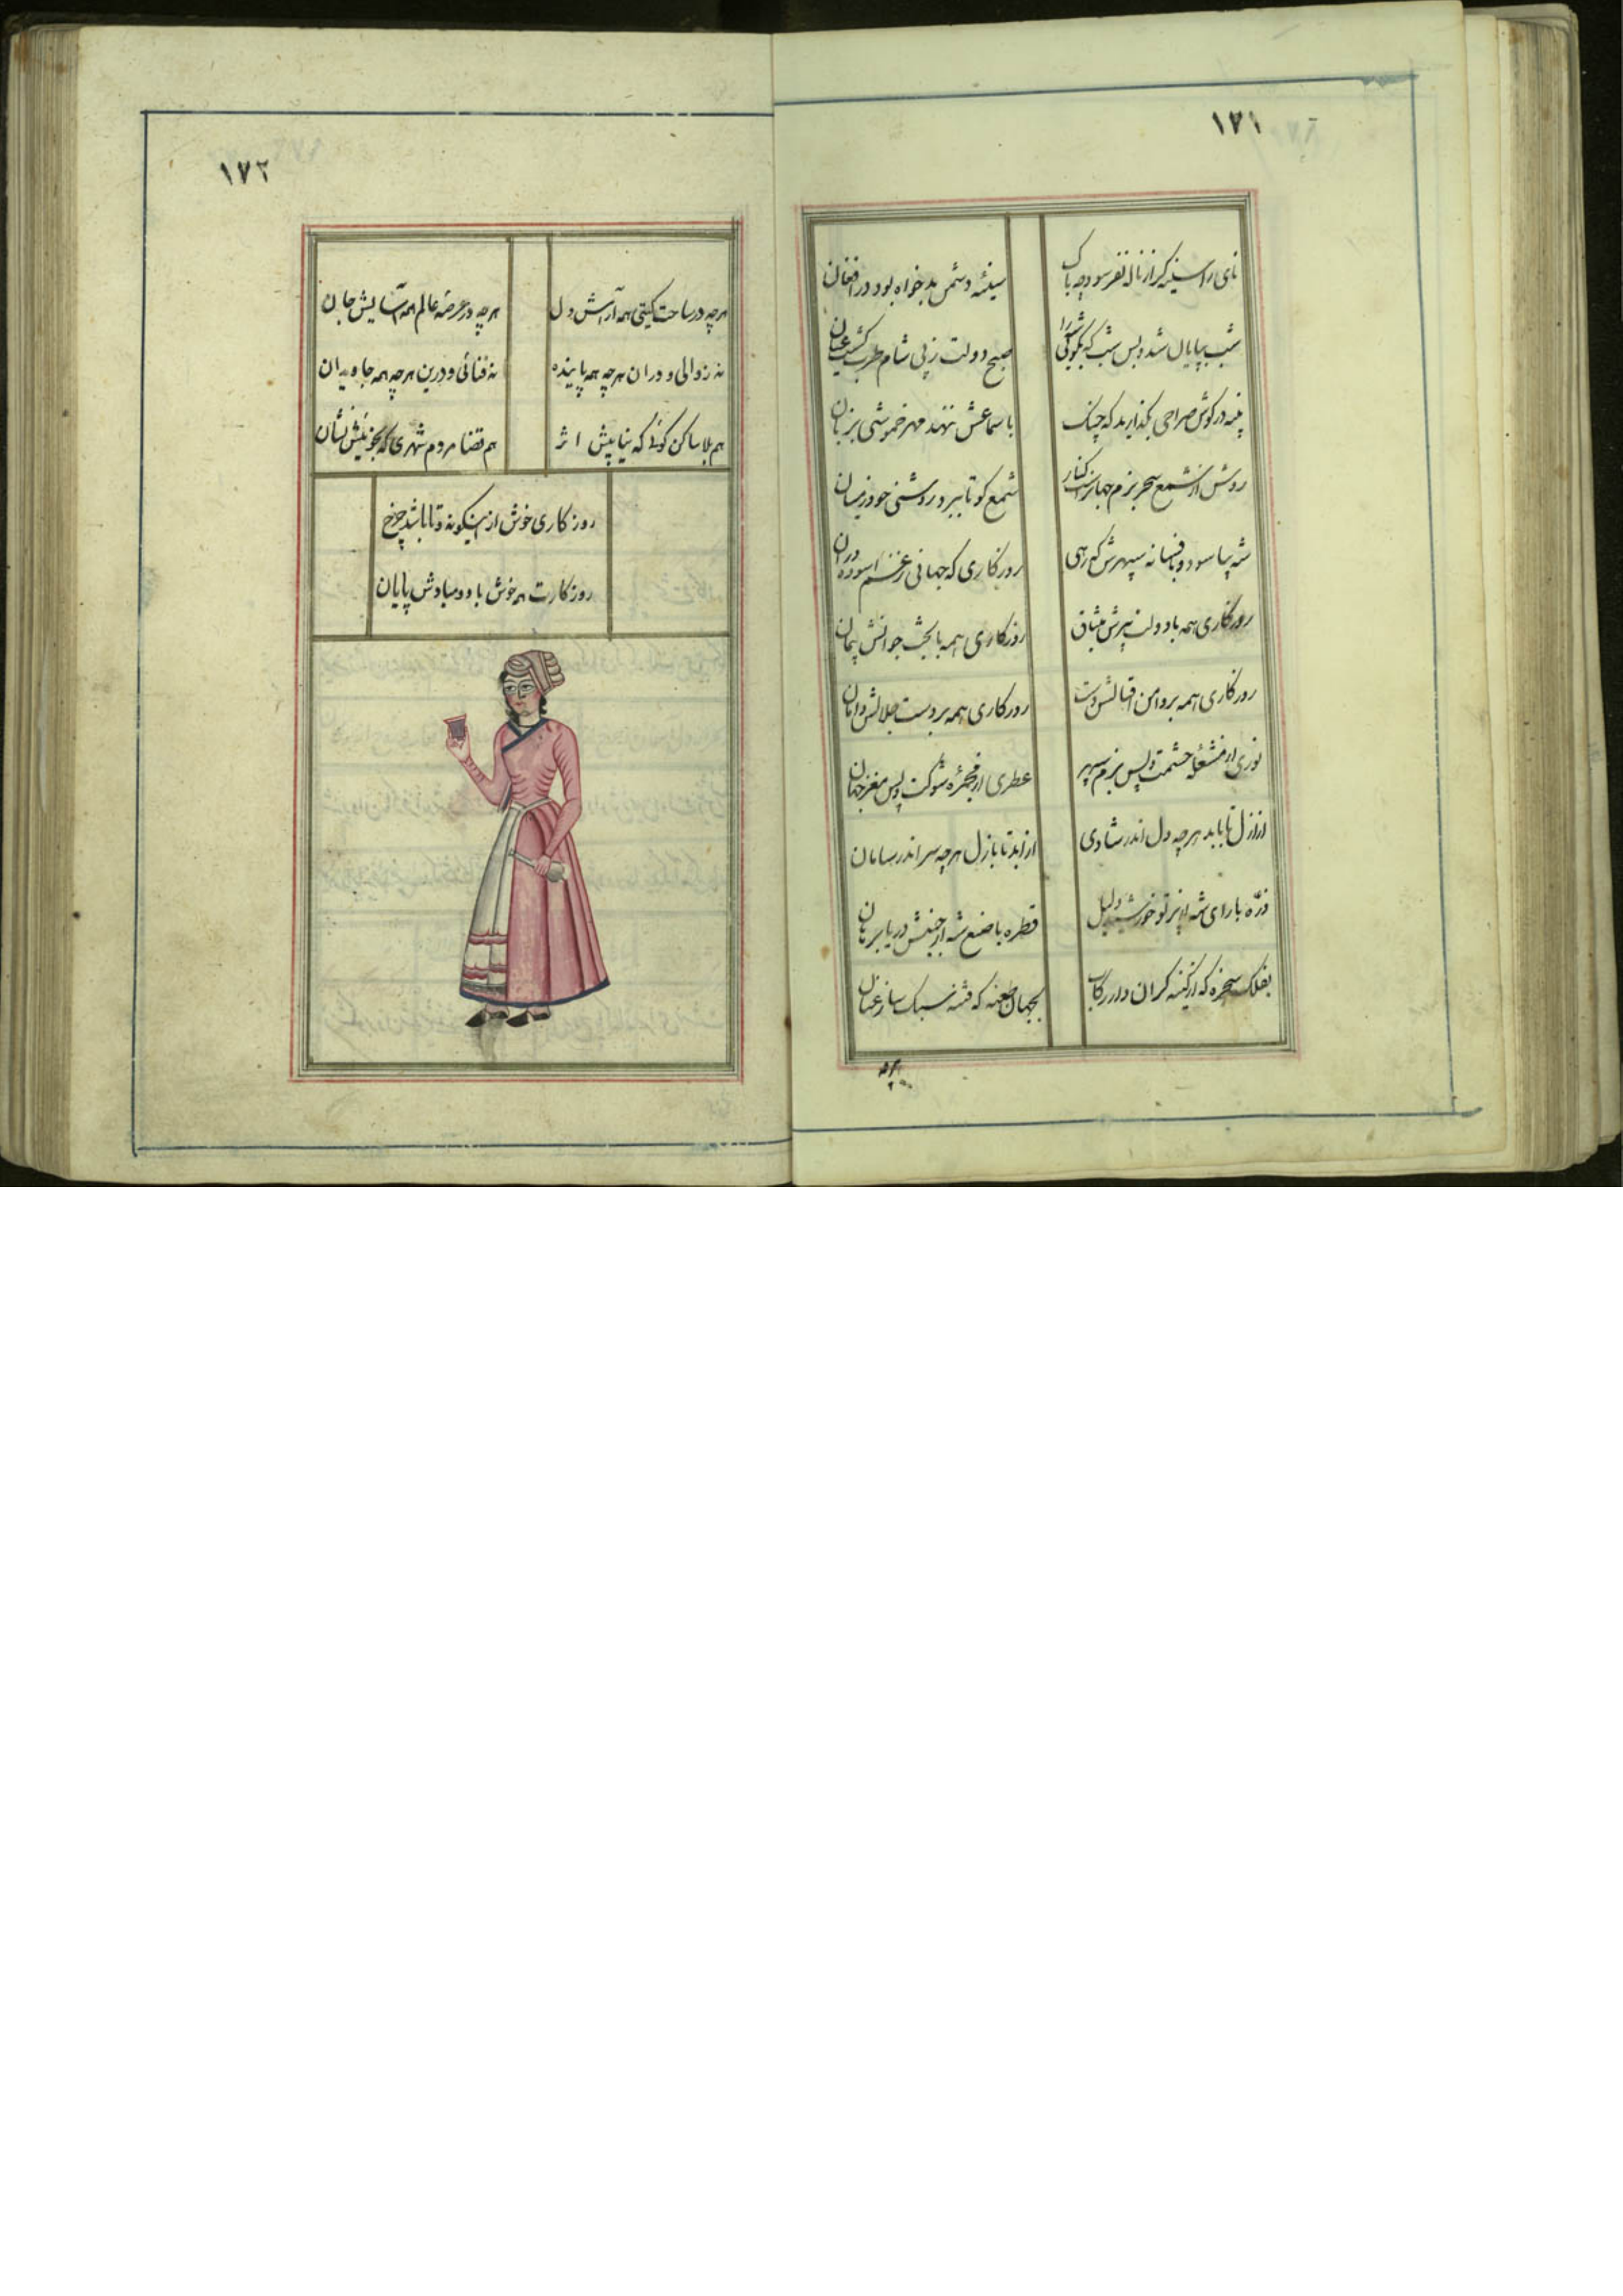 ١٧١
نای را سینه گر از ناله نفرسود چه باک
سینهٔ دشمن بدخواه بود در افغان
شب بپایان شد و بس شب که بگوئی شد را
صبح دولت ز پی شام طرب کشید عنان
پنبه در گوش صراحی بگذارید که چنگ
با سماعش ننهد مهر خموشی بزبان
روشن از شمع سحر بزم جهانراست کنار
شمع کو تا ببرد روشنی خود ز میان
شه بیاسود و بافسانه سپهرش که رهی
روزکاری که جهانی ز غم اسوده دران
روزکاری همه با دولت پیرش میثاق
روزکاری همه با بخت جوانش پیمان
روزکاری همه بر دامن اقبالش دست
روزکاری همه بر دست جلالش دامان
نوری از مشعلهٔ حشمت و پس بزم سپهر
عطری از مجمرهٔ شوکت و پس مغز جهان
از ازل تا بابد هر چه دل اندر شادی
از ابد تا بازل هر چه سر اندر سامان
ذرّه با رای شه از پرتو خورشید دلیل
قطره با صنع شه از جنبش دریا برهان
بفلک سخره که از کینه کران دار رکاب
بجهان طعنه که فتنه سبک ساز عنان
هر چه
١٧٢
هر چه در ساحت کیتی همه آرامش دل
هر چه در عرصهٔ عالم همه آسایش جان
نه زوالی و دران هر چه همه پاینده
نه فنائی و درین هر چه همه جاویدان
هم بلا ساکن کوئی که نیابیش اثر
هم قضا مردم شهری که نجوئیش نشان
روزکاری خوش ازینگونه و تا باشد چرخ
روزکارت همه خوش باد و مبادش پایان